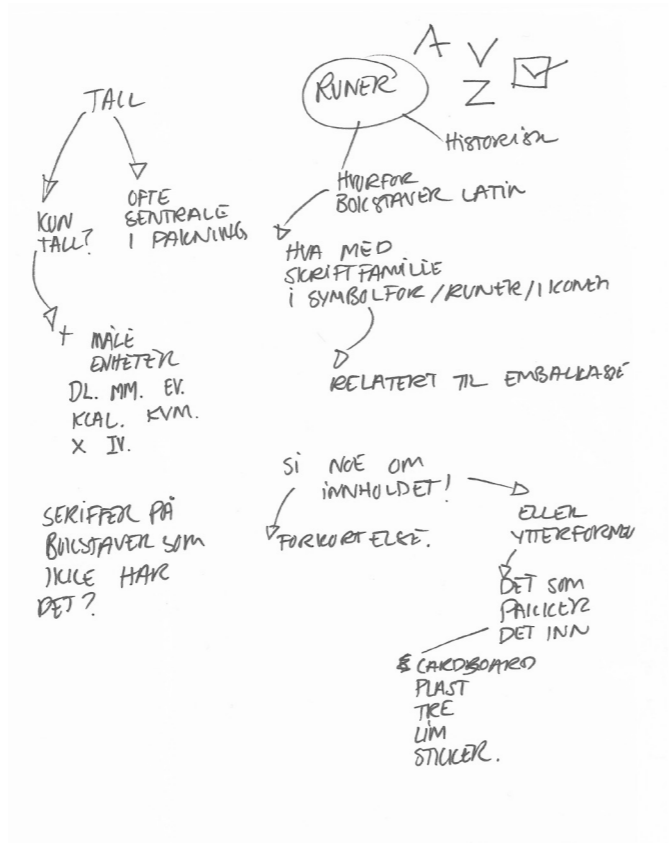 TALL
KUN
TALL?
OFTE
SENTRALE
I PAKNING
+ MÅLE
ENHETER
DL. MM. EV.
KCAL. KVM.
X IV.
SERIFFER PÅ
BOKSTAVER SOM
IKKE HAR
DET?
RUNER
A V
Z
HISTORISK
HVORFOR
BOKSTAVER LATIN
HVA MED
SKRIFTFAMILIE
I SYMBOLFOR/RUNER/IKONER
RELATERT TIL EMBALLASJE
SI NOE OM
INNHOLDET!
FORKORTELSE.
ELLER
YTTERFORMEN
DET SOM
PAKKER
DET INN
CARDBOARD
PLAST
TRE
LIM
STICKER.